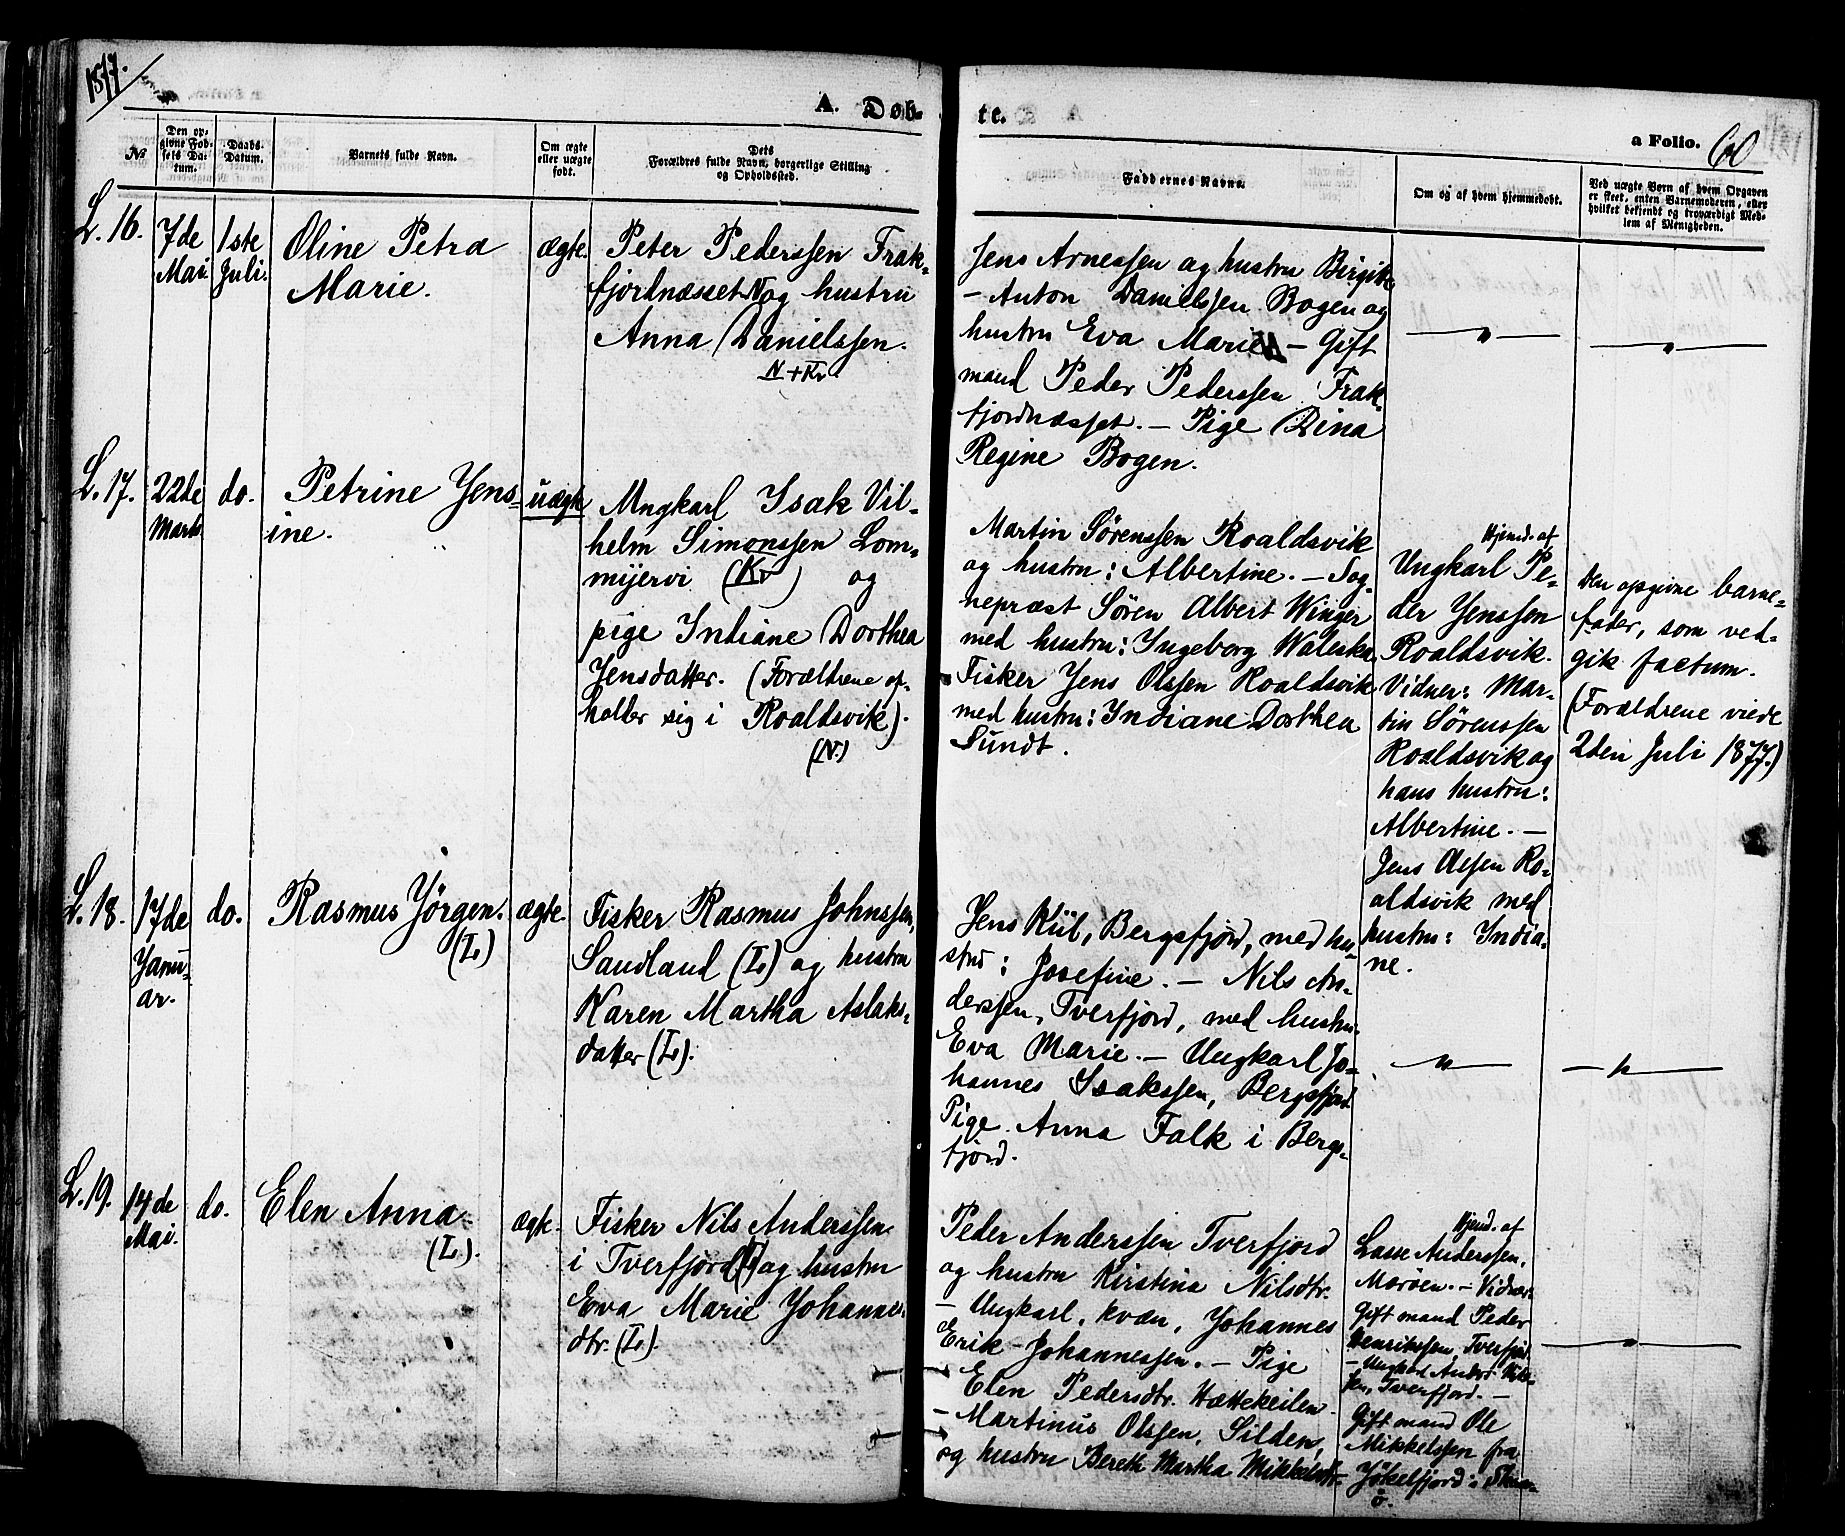 1877.
A. Døb-
te.
a Folio. 60
№
Den op-
givne Fød-
sels Da-
tum.
Daabs-
Datum.
Barnets fulde Navn.
Om ægte
eller uægte
født.
Dets
Forældres fulde Navn, borgerlige Stilling
og Opholdssted.
Faddernes Navne.
Om og af hvem hjemmedøbt.
Ved uægte Børn af hvem Opgaven
er skeet, enten Barnemoderen, eller
hvilket bekjendt og troværdigt Med-
lem af Menigheden.
L. 16.
7de
Mai.
1ste
Juli.
Oline Petra
Marie.
ægte.
Peter Pederssen Frak-
fjordnæsset N og hustru
Anna Danielssen.
N + Kv.
Jens Arnessen og hustru Birgitte
- Anton Danielssen Bogen og
hustru Eva Marie - Gift
mand Peder Pederssen Frak-
fjordnæsset. - Pige Dina
Regine Bogen.
L. 17.
22de
Marts
do.
Petrine Jens-
ine.
uægte
Ungkarl Isak Vil-
helm Simonssen Lom-
mijervi (Kv) og
pige Indiane Dorthea
Jensdatter. (Forældrene op-
holder sig i Roaldsvik).
(N.)
Martin Sørenssen Roaldsvik
og hustru: Albertine. - Sog-
nepræst Søren Albert Winger
med hustru: Ingeborg Waleska
Fisker Jens Olssen Roaldsvik
med hustru: Indiane Dorthea
Sundt.
Hjemd. af
Ungkarl Pe-
der Jenssen
Roaldsvik.
Vidner: Mar-
tin Sørenssen
Roaldsvik og
hans hustru:
Albertine. -
Jens Olsen Ro-
aldsvik med
hustru: India-
ne.
Den opgivne barne-
fader, som ved-
gik factum.
(Forældrene viede
2den Juli 1877.)
L. 18.
17de
Janu-
ar.
do.
Rasmus Jörgen.
(L.)
ægte.
Fisker Rasmus Johnssen,
Sandland (L.) og hustru
Karen Martha Aslaks-
datter (L).
Jens Kiil, Bergsfjord, med hu-
stru: Josefine. - Nils An-
derssen, Tverfjord, med hustru
Eva Marie. - Ungkarl Jo-
hannes Isakssen, Bergsfjord
Pige Anna Falk i Bergs-
fjord.
L. 19.
14de
Mai.
do.
Elen Anna
(L.).
ægte.
Fisker Nils Anderssen
i Tverfjord (L) og hustru
Eva Marie Johannes-
dtr. (L).
Peder Anderssen Tverfjord
og hustru Kirstina Nilsdtr.
- Ungkarl, kvæn, Johannes
Erik Johannessen. - Pige
Elen Pedersdtr. Hættekeilen
- Martinus Olssen, Silden,
og hustru Bereth Martha Mikkelsdtr.
Hjemd. af
Lasse Anderssen,
Marøen. - Vidner:
Gift mand Peder
Henrikssen, Tverfjord
- Ungkarl Anders Nils-
sen, Tverfjord. -
Gift mand Ole
Mikkelssen fra
Jökelfjord i Skjerv-
ö.